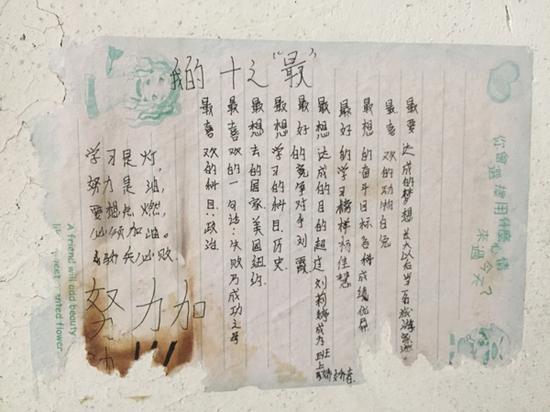 我的十之“最”
最要达成的梦想 长大以后当
最喜欢的动物白兔
最想的奋斗目标各科成绩优异
最好的学习榜样杨佳慧
最想达成的目的超过刘莉婷成为班上
最好的竞争对手刘霞
最想学习的科目:历史
最想去的国家美国纽约
最喜欢的一句话:失败乃成功之母
最喜欢的科目:政治
学习是灯,
努力是油,
要想点燃,
必须加油。
必败
努力加
油!!!
A friend will add beauty
flower.
用什麼心情
來過今天?